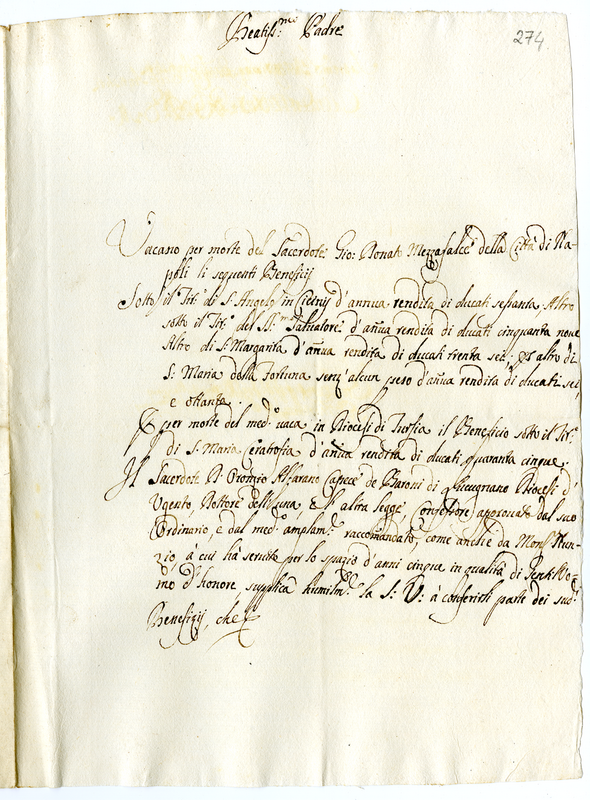 Beatiss.mo Padre
274
Vacano per morte del Sacerdote Gio: Donato Mezzasalce della Città di Na-
poli li seguenti Beneficij
Sotto il Tit.o di S. Angelo in d'annua rendita di ducati sessanta. Altro
sotto il Tit.o del SS.mo Salvatore d'añua rendita di ducati cinquanta nove
Altro di S. Margarita d'añua rendita di ducati trenta sei, et altro di
S. Maria della Fortuna senz'alcun peso d'añua rendita di ducati sei,
e ottanta.
E per morte del med.o vaca in Diocesi di il Beneficio sotto il Tit.o
di S. Maria d'añua rendita di ducati quaranta cinque.
Il Sacerdote D. Oronzio Alfarano Capece de Baroni di Diocesi d'
Ugento, Dottore dell'una, e l'altra legge, Confessore approvato dal suo
Ordinario, e dal med.o amplam.te raccomandato, come anche da Mons.r Nun-
zio, à cui hà servito per lo spazio d'anni cinque in qualità di Gentil'Vo-
mo d'honore, supplica humilm.te la S. V. à conferirli parte dei sud.i
Beneficij, che